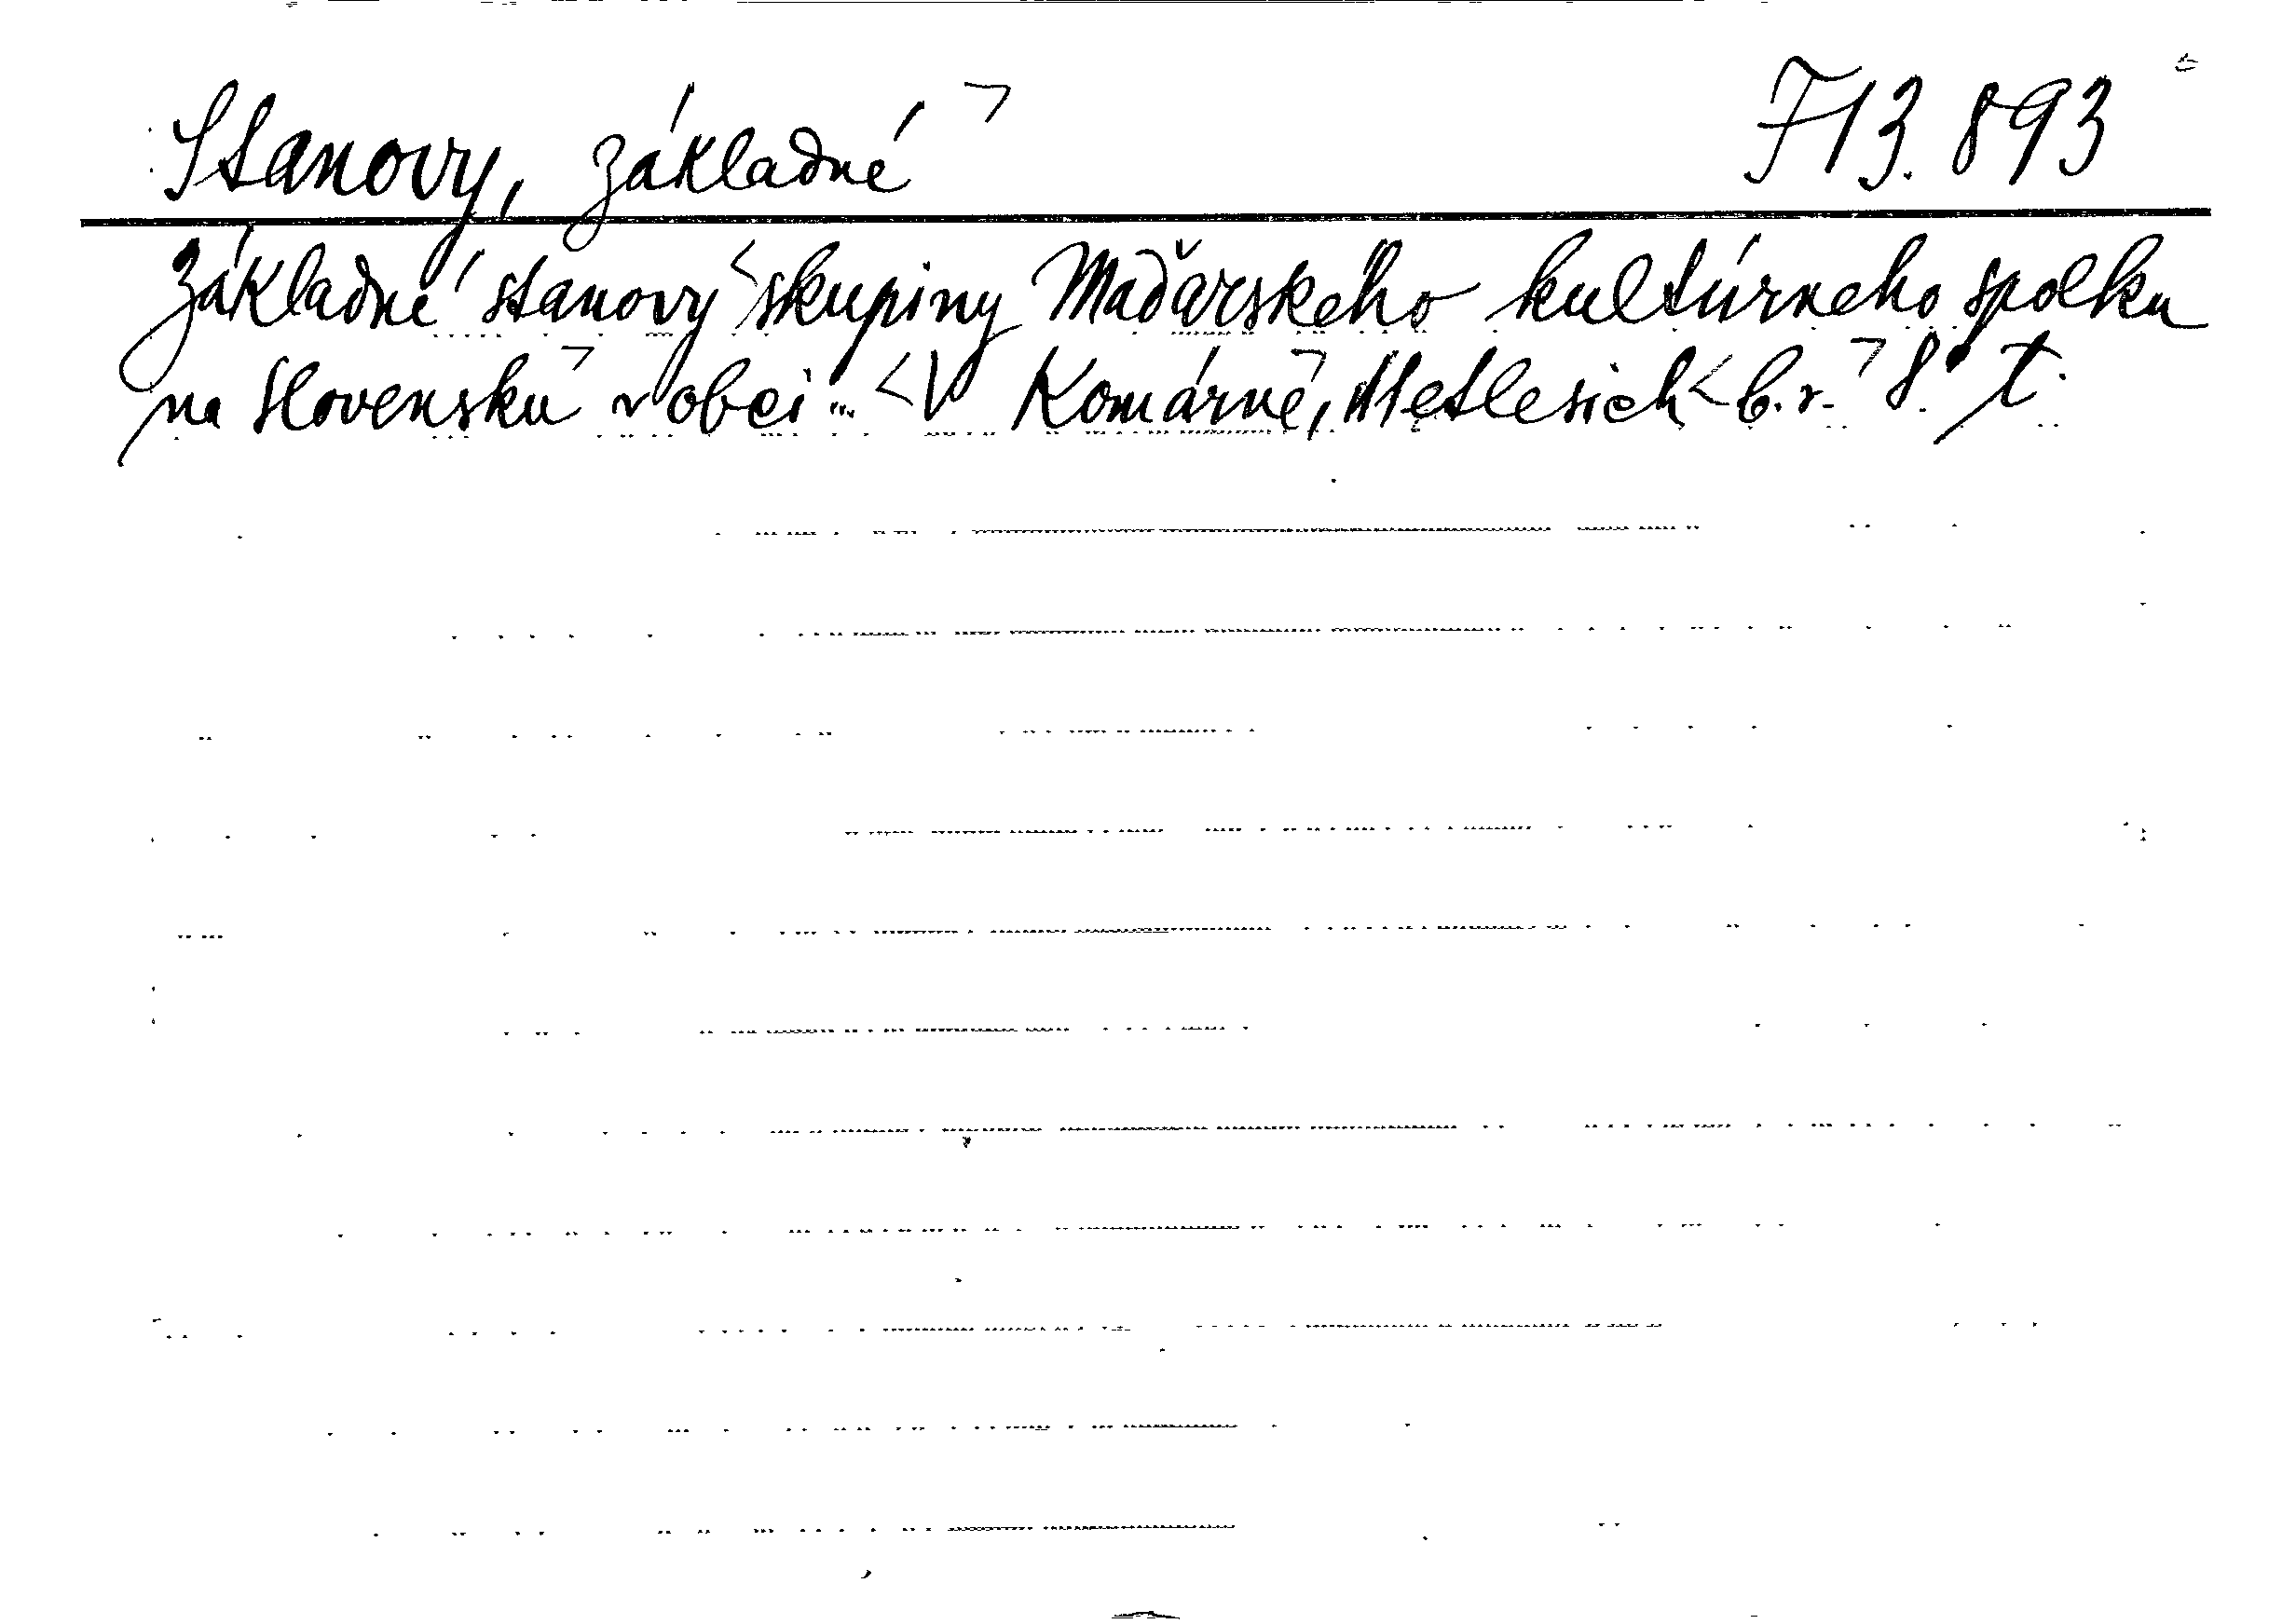 Stanovy, základné 713.893
Základné stanovy skupiny Maďarského kultúrneho spolku
na Slovensku v obci ... V Komárně, Metlesich b. r. 8° t.